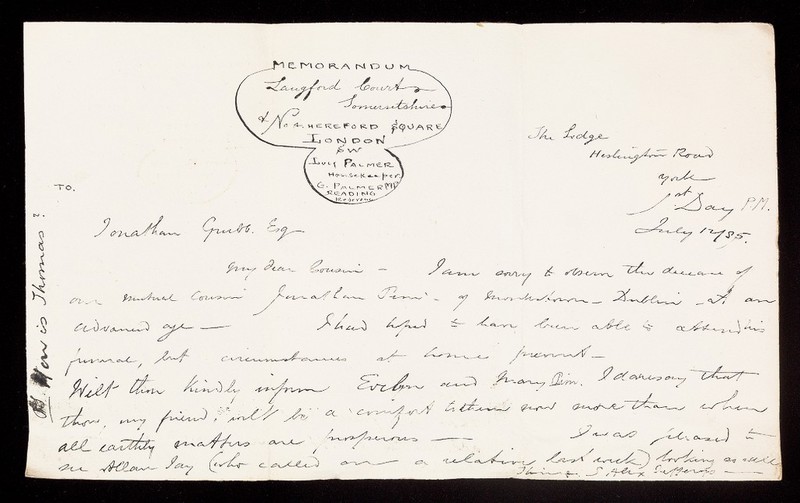 MEMORANDUM
Langford Court
Somersetshire
& No 4. HEREFORD SQUARE
LONDON
SW
LUCY PALMER
Housekeeper
G. PALMER MP
READING
The Lodge
Heslington Road
York
1st Day P.M.
July 12/85.
TO.
Jonathan Grubb. Esq
My dear Cousin - I am sorry to observe the decease of
our mutual cousin Jonathan Pim - of Monkstown - Dublin - at an
advanced age - I had hoped to have been able to attend his
funeral, but circumstances at home prevent -
Wilt thou kindly inform Evelyn and Mary Pim. I daresay that
thou, my friend, wilt be a comfort to them now more than when
all earthly matters are prosperous - I was pleased to
see Allan Jay (who called on a relative last week) looking as well
How is Thomas?